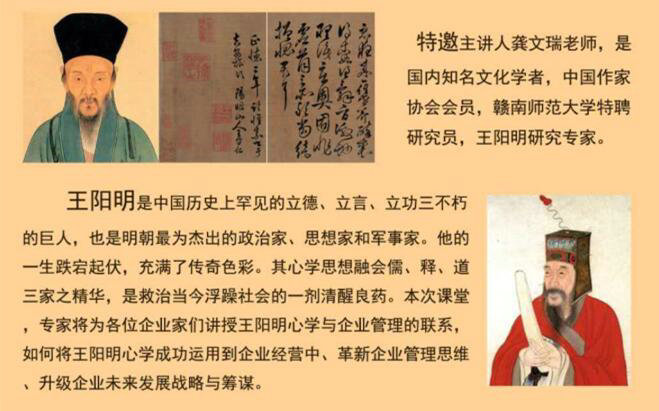 特邀主讲人龚文瑞老师，是
国内知名文化学者，中国作家
协会会员，赣南师范大学特聘
研究员，王阳明研究专家。
王阳明是中国历史上罕见的立德、立言、立功三不朽
的巨人，也是明朝最为杰出的政治家、思想家和军事家。他的
一生跌宕起伏，充满了传奇色彩。其心学思想融会儒、释、道
三家之精华，是救治当今浮躁社会的一剂清醒良药。本次课堂
，专家将为各位企业家们讲授王阳明心学与企业管理的联系，
如何将王阳明心学成功运用到企业经营中、革新企业管理思维
、升级企业未来发展战略与筹谋。